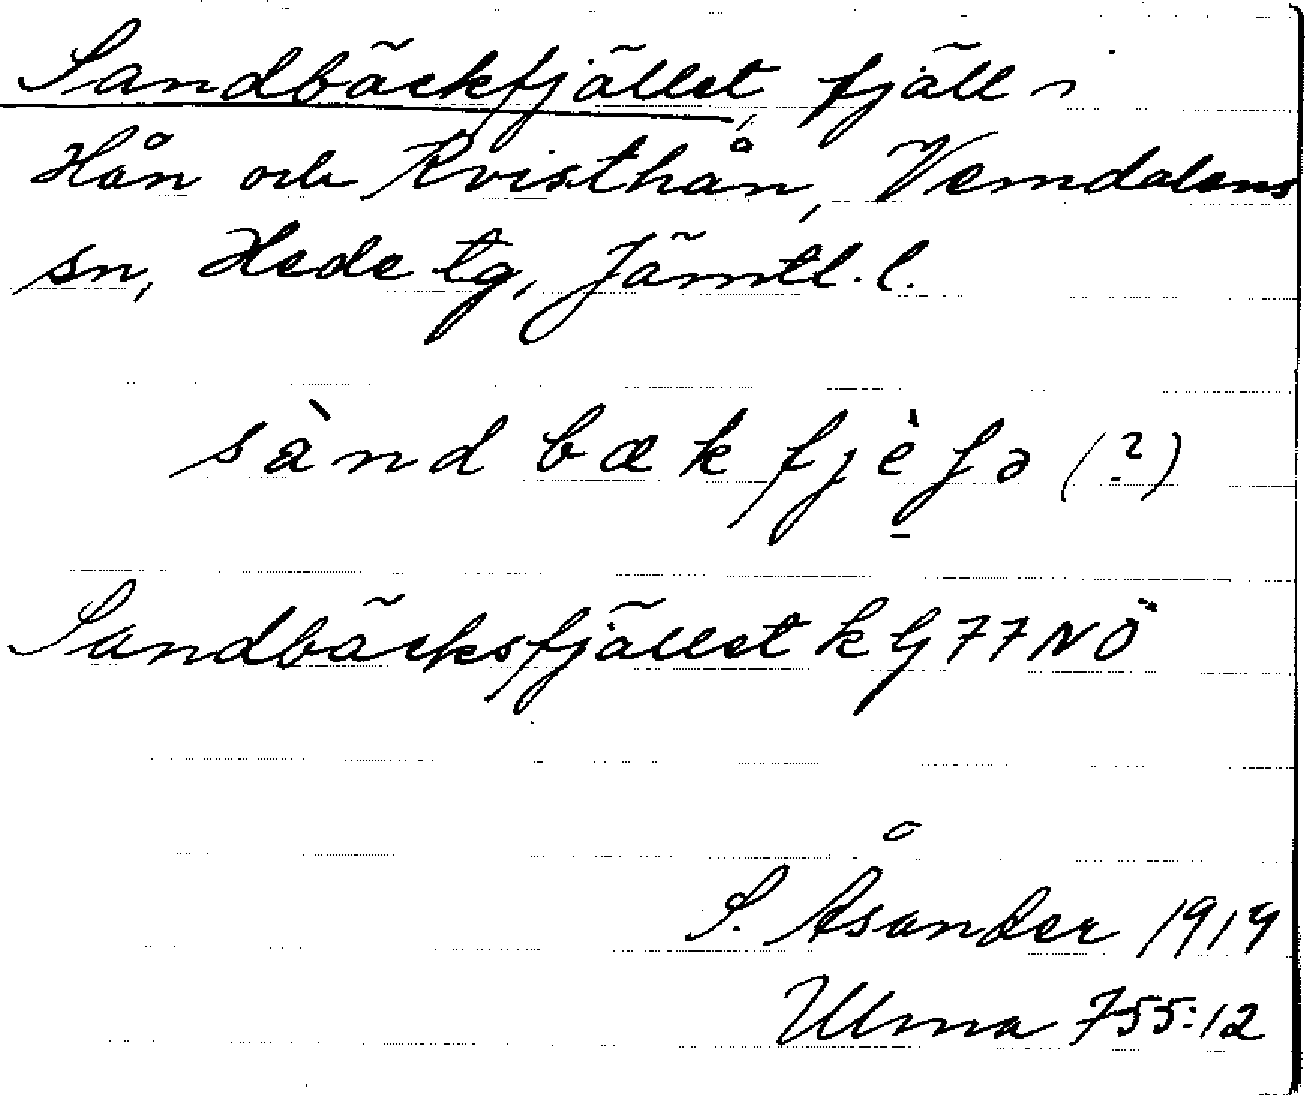 Sandbäckfjället, fjäll i
Hån och Kvisthån, Vemdalens
sn, Hede tg, Jämtl. l.
sànd bæk fjèʃə (?)
Sandbäcksfjället k G 77 NÖ
S. Åsander 1919
Ulma 755:12